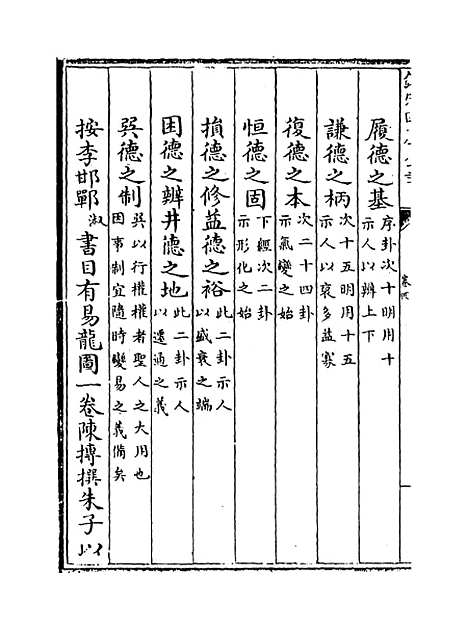 履德之基序卦次十明用十示人以辨上下
謙德之柄次十五明用十五示人以裒多益寡
復德之本次二十四卦示氣變之始
恒德之固下經次二卦示形化之始
損德之修益德之裕此二卦示人以盛衰之端
困德之辨井德之地此二卦示人以遷通之義
巽德之制巽以行權權者聖人之大用也因事制宜隨時變易之義備矣
按李邯鄲淑書目有易龍圖一卷陳摶撰朱子以